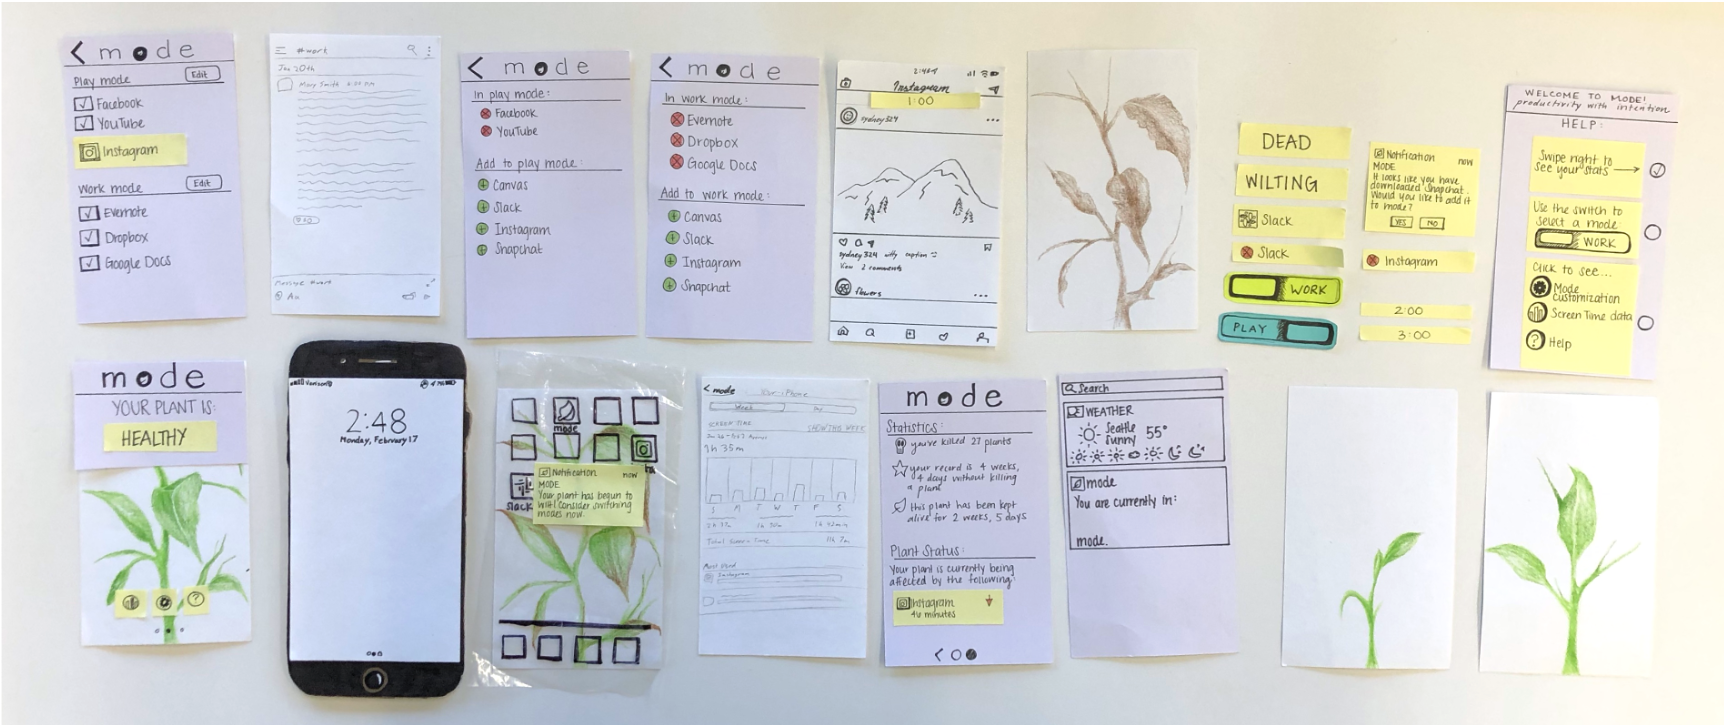 mode
Play mode Edit
Facebook
YouTube
Instagram
Work mode Edit
Evernote
Dropbox
Google Docs
#work
Jan 20th
Mary Smith
mode
In play mode:
Facebook
YouTube
Add to play mode:
Canvas
Slack
Instagram
Snapchat
mode
In work mode:
Evernote
Dropbox
Google Docs
Add to work mode:
Canvas
Slack
Instagram
Snapchat
Instagram
1:00
sydney324
sydney324 witty caption
View 2 comments
flowers
DEAD
WILTING
Slack
Slack
WORK
PLAY
Notification now
MODE
It looks like you have
downloaded Snapchat.
Would you like to add it
to mode?
YES NO
Instagram
2:00
3:00
WELCOME TO MODE!
productivity with intention
HELP:
Swipe right to
see your stats
Use the switch to
select a mode
WORK
Click to see...
Mode
customization
Screen Time data
Help
mode
YOUR PLANT IS:
HEALTHY
2:48
Monday, February 17
mode
Slack
Notification now
MODE
Your plant has begun to
wilt! Consider switching
modes now.
mode
Week
SCREEN TIME
SHOW THIS WEEK
1h 35m
S M T W T F S
Total Screen Time 11h 7m
Most Used
Instagram
mode
Statistics:
you've killed 27 plants
your record is 4 weeks,
4 days without killing
a plant
this plant has been kept
alive for 2 weeks, 5 days
Plant Status:
Your plant is currently being
affected by the following:
Instagram
46 minutes
Search
WEATHER
Seattle 55°
Sunny
mode
You are currently in:
mode.